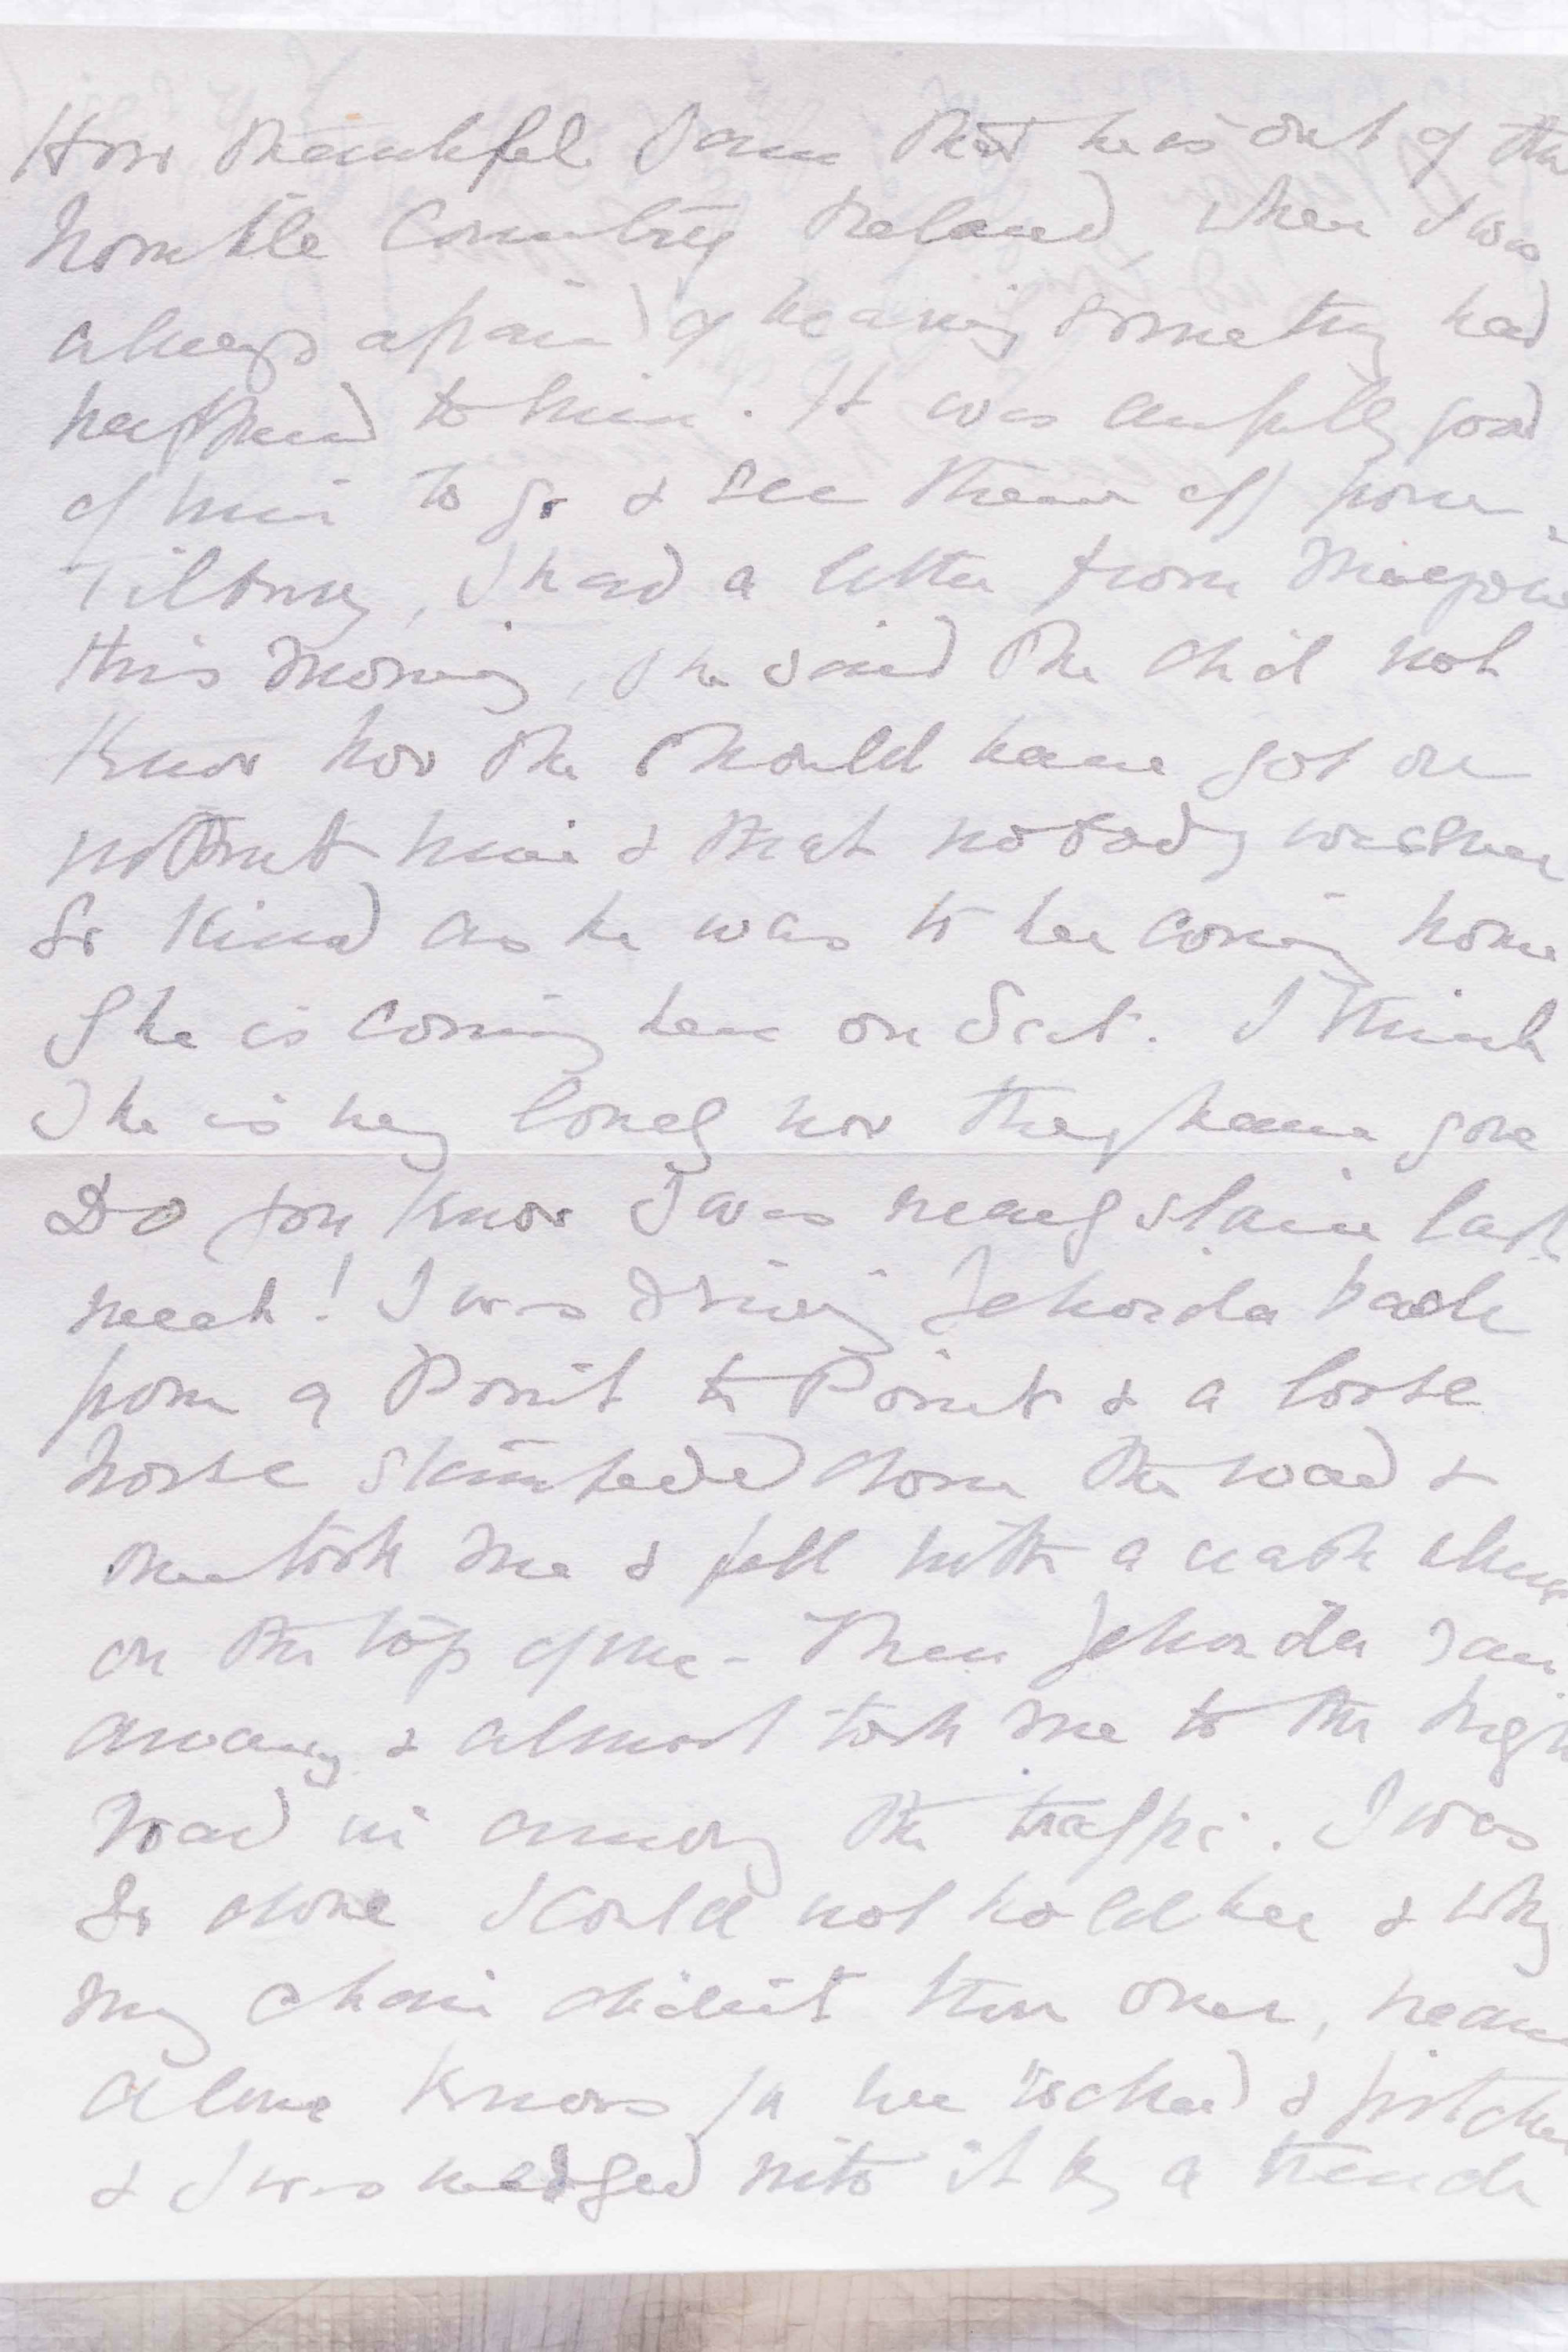 How thankful I am that he is out of the
horrible Country Ireland, when I was
always afraid of hearing something had
happened to him. It was awfully good
of him to go & see them off from
Tilbury, I had a letter from
this morning, she said she did not
know how she should have got on
without him & that nobody was ever
so kind as he was to her coming home
She is coming here on Sat. I think
She is very lonely now they have gone
Do you know I was nearly slain last
week! I was driving Jehoida back
from a Point to Point & a loose
horse stampeded down the road &
overtook me & fell with a crash almost
on the top of me - Then Jehoida ran
away & almost took me to the high
road in among the traffic. I was
So alone I could not hold her & why
my chair didn't turn over, heaven
alone knows for we rocked & pitched
& I was wedged into it by a